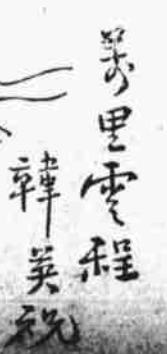 萬里雲程
韓英祝